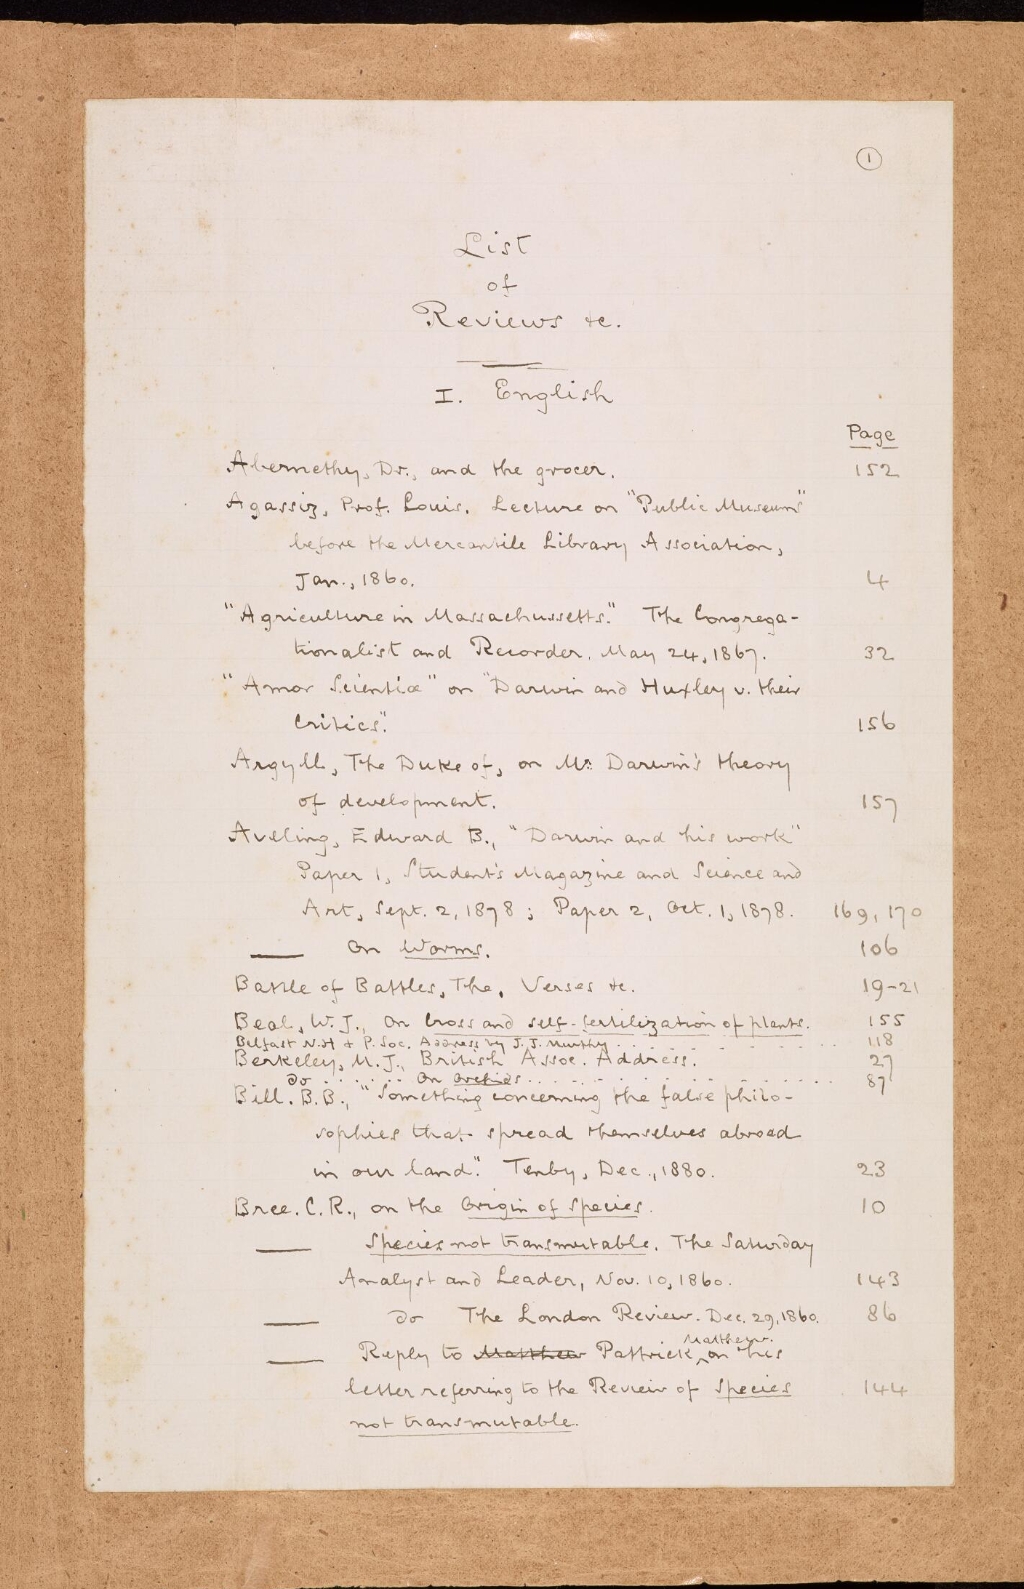 1
List
of
Reviews &c.
I. English
Page
Abernethy, Dr., and the grocer. 152
Agassiz, Prof. Louis. Lecture on "Public Museums"
before the Mercantile Library Association,
Jan., 1860. 4
"Agriculture in Massachussetts." The Congrega-
tionalist and Recorder. May 24, 1867. 32
"Amor Scientiæ" on "Darwin and Huxley v. their
Critics". 156
Argyll, The Duke of, on Mr Darwin's theory
of development. 157
Aveling, Edward B., "Darwin and his work"
Paper 1, Student's Magazine and Science and
Art, Sept. 2, 1878; Paper 2, Oct. 1, 1878. 169, 170
— On Worms. 106
Battle of Battles, The, Verses &c. 19-21
Beal, W.J., On Cross and self-fertilization of plants. 155
Belfast N.H & P. Soc. Address by J.J. Murphy . . . . . . 118
Berkeley, M.J., British Assoc. Address. 27
Do . . . . . . On Orchids . . . . . . . . . . . . 87
Bill. B.B., "Something concerning the false philo-
sophies that spread themselves abroad
in our land." Tenby, Dec., 1880. 23
Bree. C.R., on the Origin of Species. 10
— Species not transmutable. The Saturday
Analyst and Leader, Nov. 10, 1860. 143
— Do The London Review. Dec. 29, 1860. 86
— Reply to Matthew Pattrick Matthew. on his
letter referring to the Review of Species 144
not transmutable.